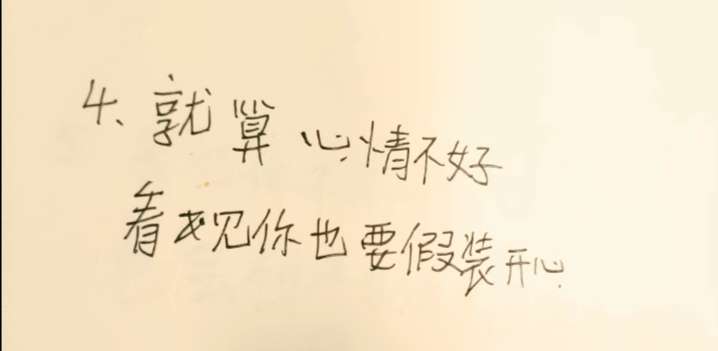 4、就算心情不好
看见你也要假装开心